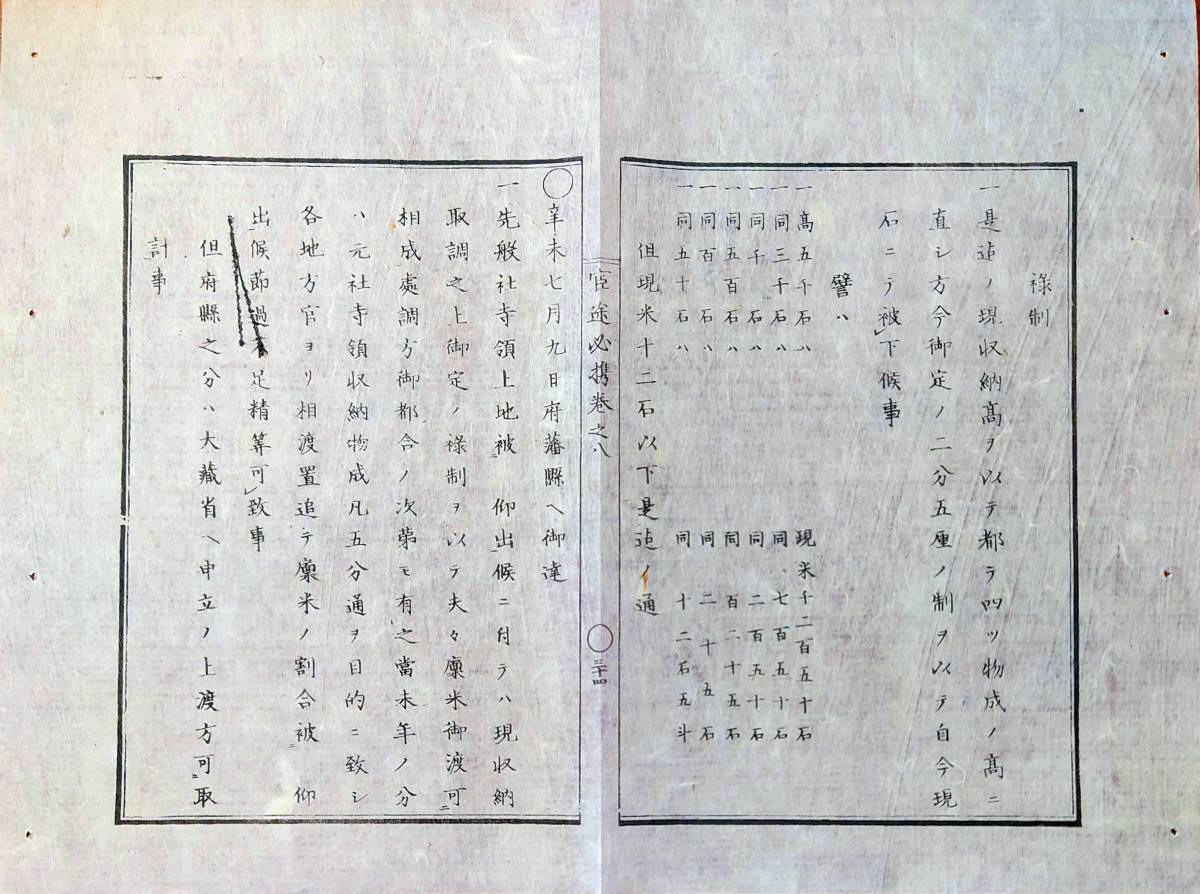 祿制
一是迠ノ現収納髙ヲ以テ都テ四ツ物成ノ髙ニ
直シ方今御定ノ二分五厘ノ制ヲ以テ自今現
石ニテ被下候事
譬ハ
一髙五千石ハ 現米千二百五十石
一同三千石ハ 同七百五十石
一同千石ハ 同二百五十石
一同五百石ハ 同百二十五石
一同百石ハ 同二十五石
一同五十石ハ 同十二石五斗
但現米十二石以下是迠ノ通
官途必携巻之八
三十四
辛未七月九日府藩縣ヘ御達
一先般社寺領上地被 仰出候ニ付テハ現収納
取調之上御定ノ祿制ヲ以テ夫々廩米御渡可
相成處調方御都合ノ次第モ有之當未年ノ分
ハ元社寺領収納物成凡五分通ヲ目的ニ致シ
各地方官ヨリ相渡置追テ廩米ノ割合被 仰
出候節過不足精算可致事
但府縣之分ハ大藏省ヘ申立ノ上渡方可取
計事